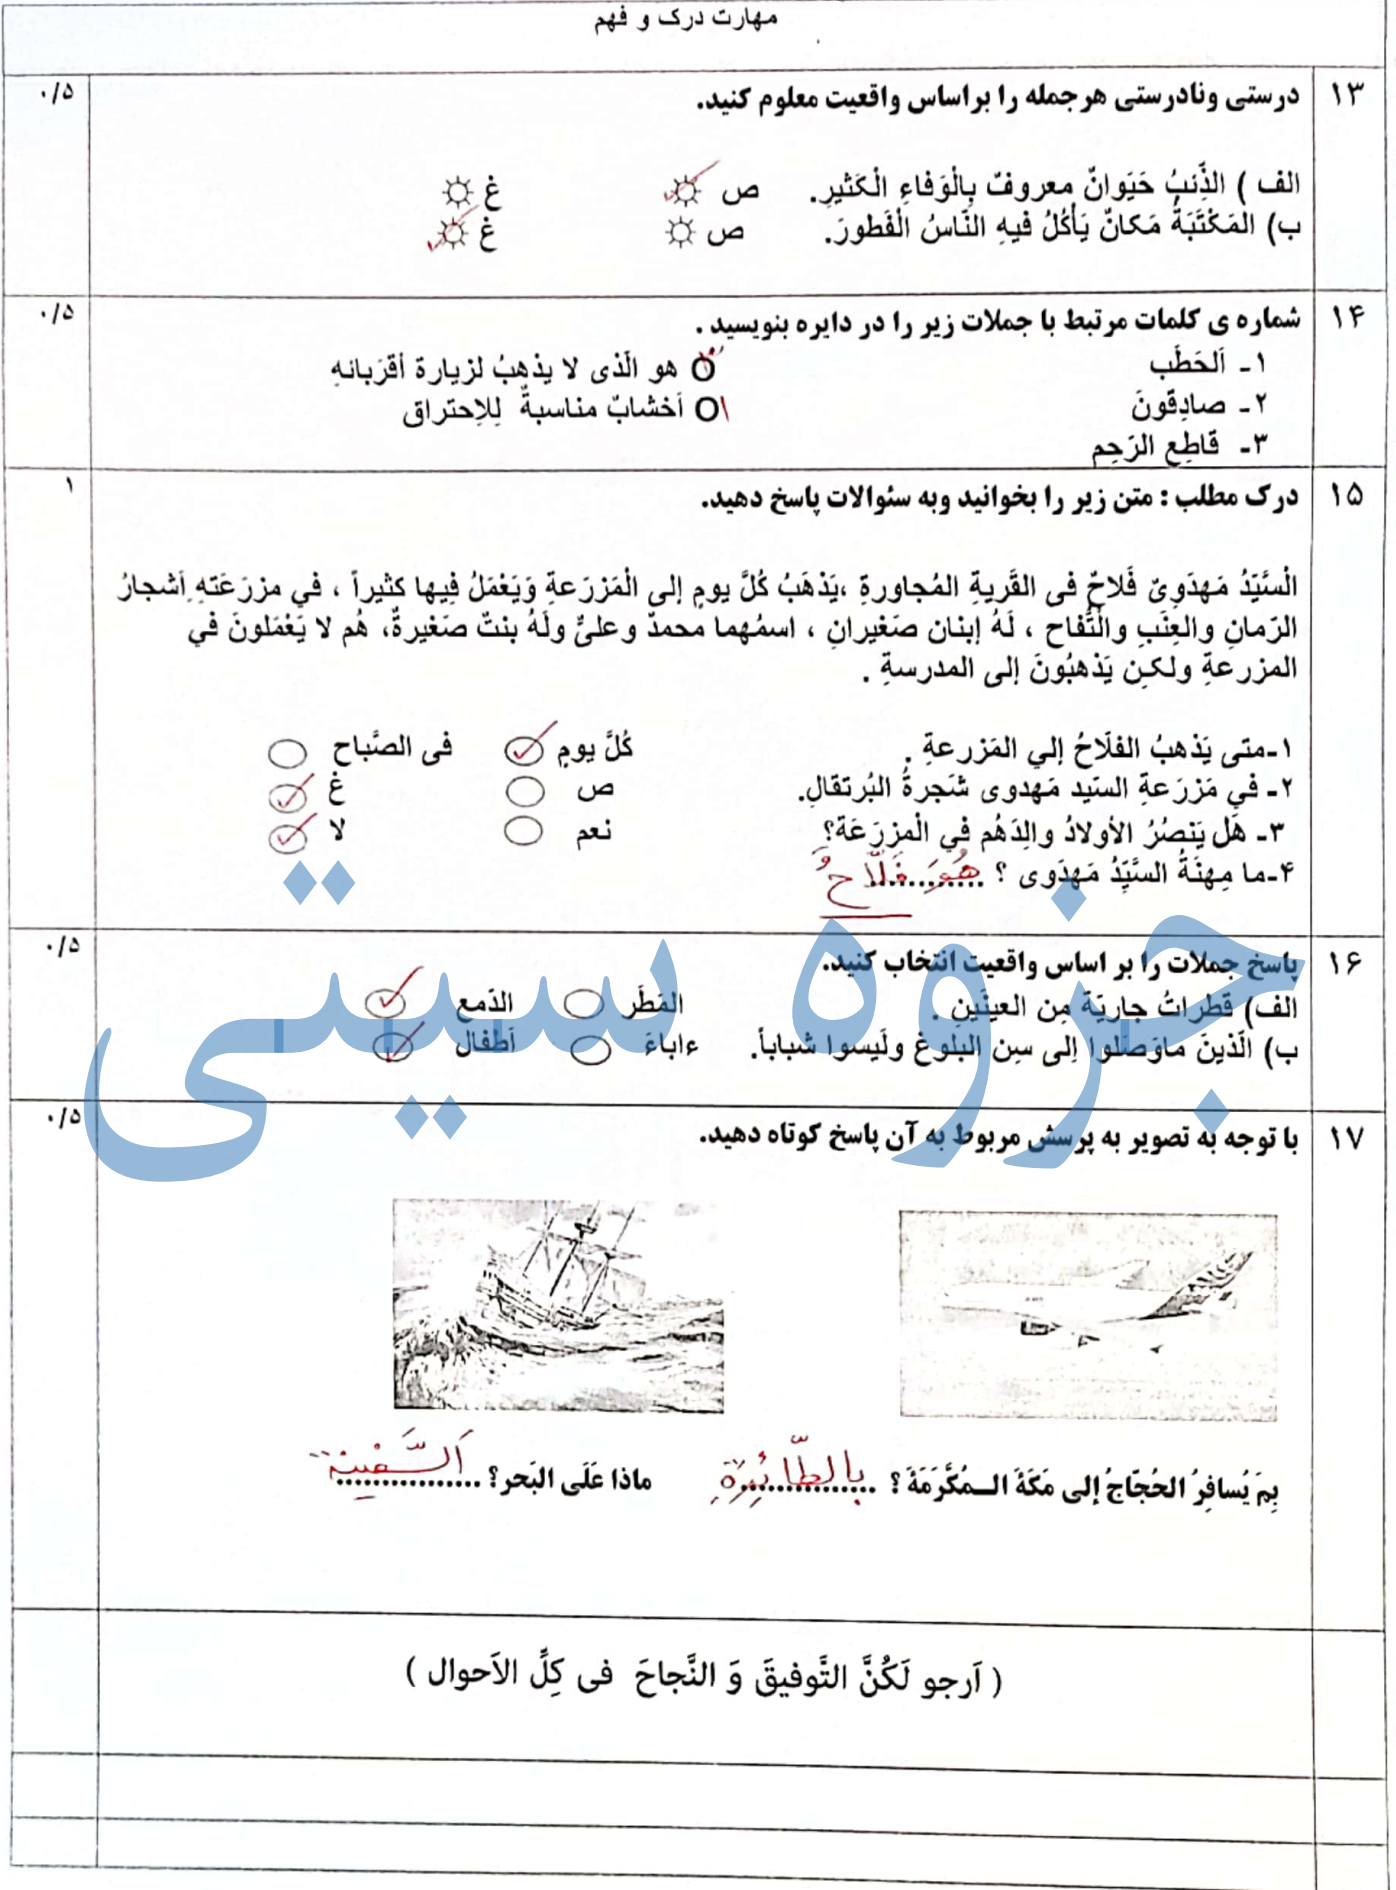 مهارت درک و فهم
۱۳ درستی ونادرستی هرجمله را براساس واقعیت معلوم کنید. ۰/۵
الف ) الذِّئبُ حَیَوانٌ معروفٌ بِالْوَفاءِ الْکَثیرِ. ص غ
ب) المَکْتَبَةُ مَکانٌ یَأکُلُ فیهِ النّاسُ الْفَطورَ. ص غ
۱۴ شماره ی کلمات مرتبط با جملات زیر را در دایره بنویسید . ۰/۵
۱- اَلحَطَب ۳ هو الّذی لا یذهبُ لزیارة أقرَبانهِ
۲- صادِقونَ ۱ اَخشابٌ مناسبةٌ لِلِاحتراق
۳- قاطِع الرَحِم
۱۵ درک مطلب : متن زیر را بخوانید وبه سئوالات پاسخ دهید. ۱
الْسَّیَدُ مَهدَویّ فَلاحٌ فی القَریةِ المُجاورةِ ،یَذْهَبُ کُلَّ یومٍ إلی الْمَزرَعةِ وَیَعْمَلُ فِیها کثیراً ، في مزرَعَتهِ اَشجارُ
الرّمانِ والعِنَبِ والتُّفاح ، لَهُ إبنان صَغیرانِ ، اسمُهما محمدٌ وعليٌّ ولَهُ بنتٌ صَغیرةٌ، هُم لا یَعْمَلونَ في
المزرعةِ ولکِن یَذْهبُونَ إلی المدرسةِ .
۱-متی یَذهبُ الفلّاحُ إلي المَزرعةِ . کُلَّ یومٍ فی الصَّباح
۲- في مَزرَعةِ السّید مَهدوی شَجرةُ البُرتقالِ. ص غ
۳- هَل یَنصُرُ الأولادُ والِدَهُم فِي الْمزرَعَة؟ نعم لا
۴-ما مِهنَةُ السَّیِّدُ مَهدَوی ؟ هُوَ فَلّاحٌ
۱۶ پاسخ جملات را بر اساس واقعیت انتخاب کنید. ۰/۵
الف) قَطراتُ جاریَة مِن العینَینِ . المَطَر الدّمع
ب) الّذینَ ماوَصَلوا إلی سِن البلُوغ ولَیسوا شباباً. ءاباءَ اَطْفال
۱۷ با توجه به تصویر به پرسش مربوط به آن پاسخ کوتاه دهید. ۰/۵
بِمَ یُسافِرُ الحُجّاجُ إلی مَکَةَ الـمُکَّرَمَةَ ؟ بِالطّائِرَةِ ماذا عَلَی البَحر؟ اَلسَّفینة
( اَرجو لَکُنَّ التَّوفیقَ وَ النَّجاحَ فی کِلِّ الاَحوال )
جزوه سیتی